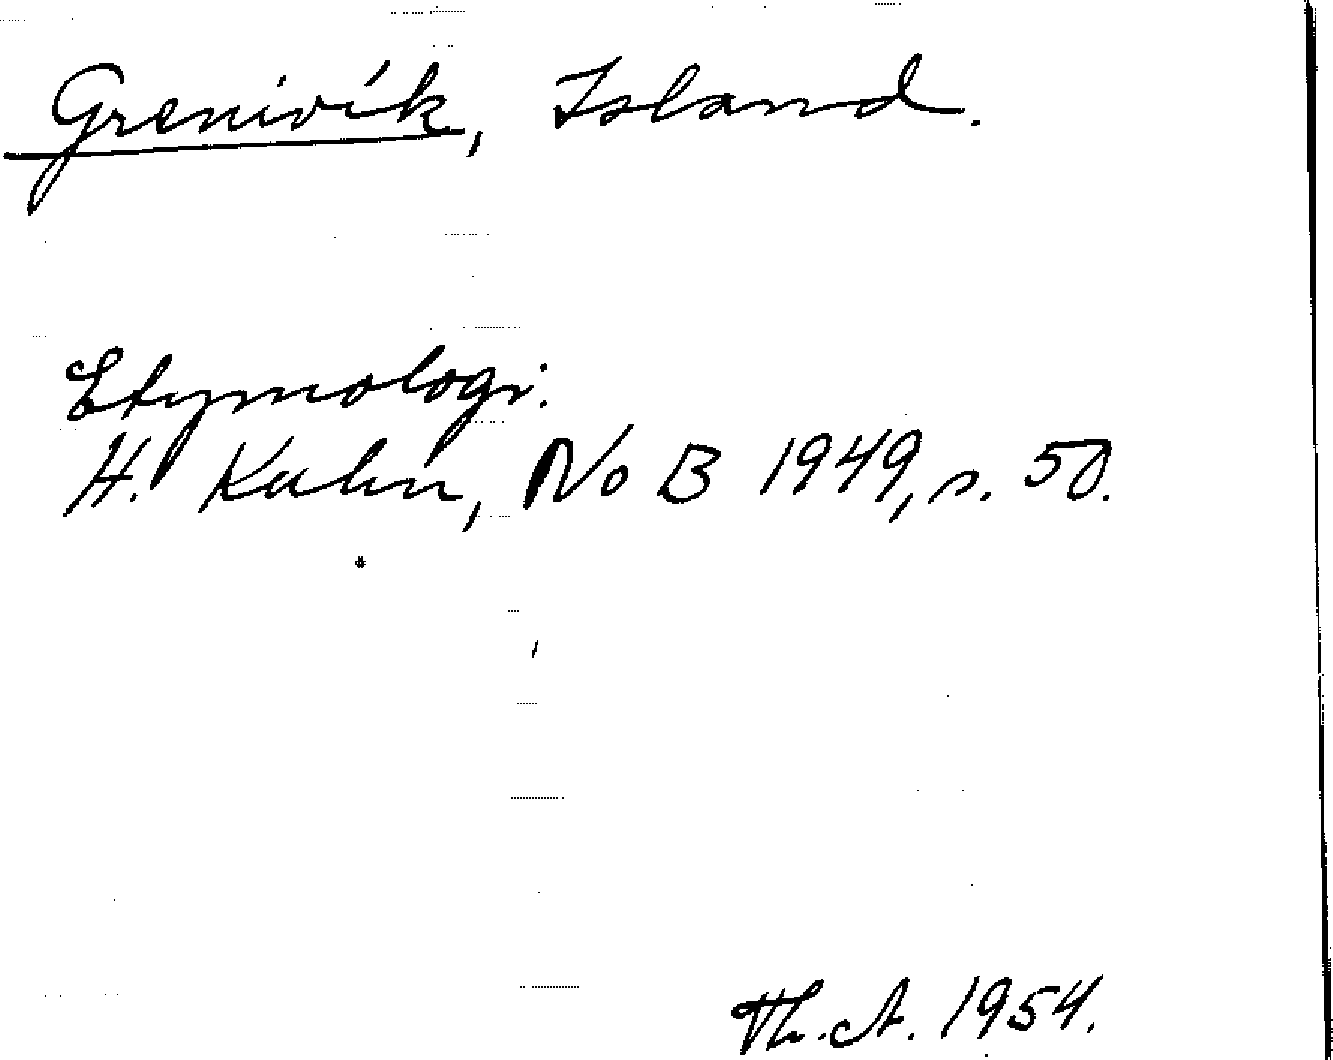 Grenivík, Island.
Etymologi:
H. Kuhn, NoB 1949, s. 50.
Th. A. 1954.